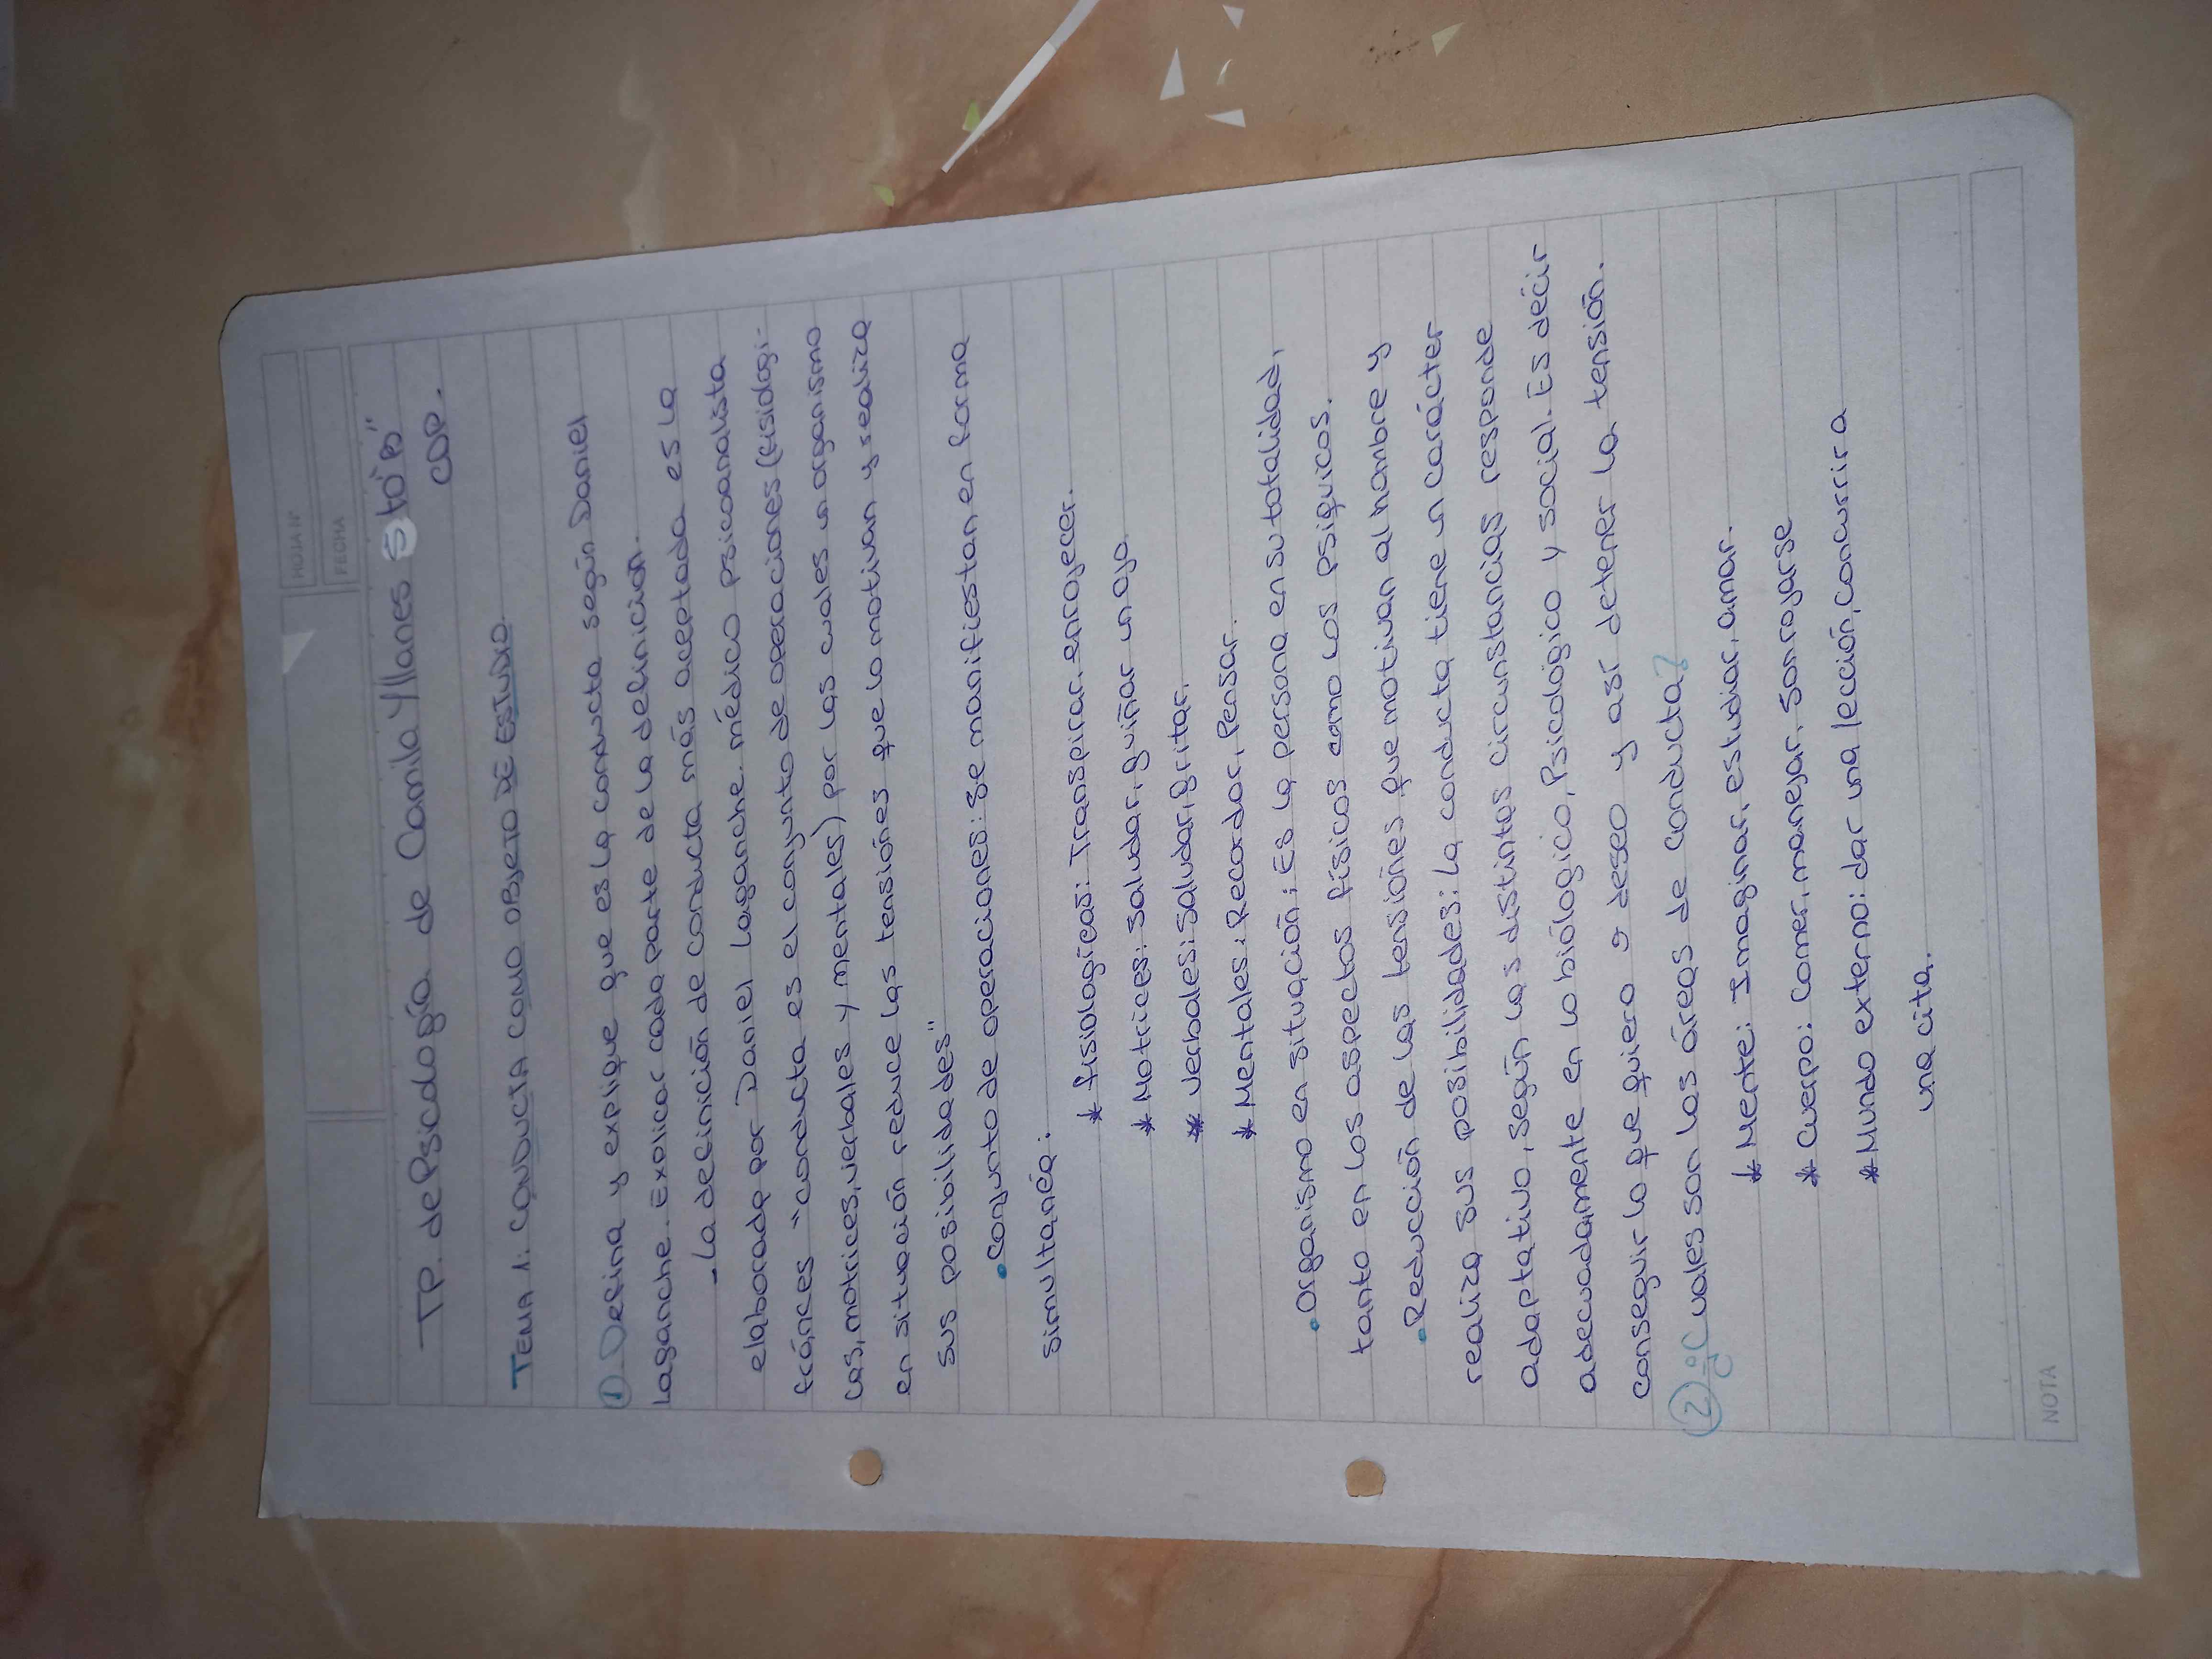 HOJA N°
FECHA
TP. de Psicología. de Camila Yllanes 5to"B"
CDP.
TEMA 1: CONDUCTA COMO OBJETO DE ESTUDIO.
① Defina y explique que es la conducta según Daniel
Laganche. Explicar cada parte de la definición.
- La definición de conducta más aceptada es la
elaborada por Daniel Laganche. médico psicoanalista
fránces "conducta es el conjunto de operaciones (fisiologi-
cas, motrices, verbales y mentales) por las cuales un organismo
en situación reduce las tensiónes que lo motivan y realiza
sus posibilidades"
• Conjunto de operaciones: se manifiestan en forma
simultanéa:
* fisiologicas: Transpirar, enrojecer.
* Motrices: saludar, guiñar un ojo.
* Verbales: saludar, gritar.
* Mentales: Recordar, Pensar.
• Organismo en situación: Es la persona en su totalidad,
tanto en los aspectos físicos como los psiquicos.
• Reducción de las tensiones que motivan al hombre y
realiza sus posibilidades: La conducta tiene un carácter
adaptativo, según las distintas circunstancias responde
adecuadamente en lo biólogico, Psicológico y social. Es décir
conseguir lo que quiero o deseo y asi detener la tensión.
② ¿Cuales son las áreas de conducta?
* Mente: Imaginar, estudiar, amar.
* Cuerpo: Comer, manejar, sonrojarse
* Mundo externo: dar una lección, concurrir a
una cita.
NOTA